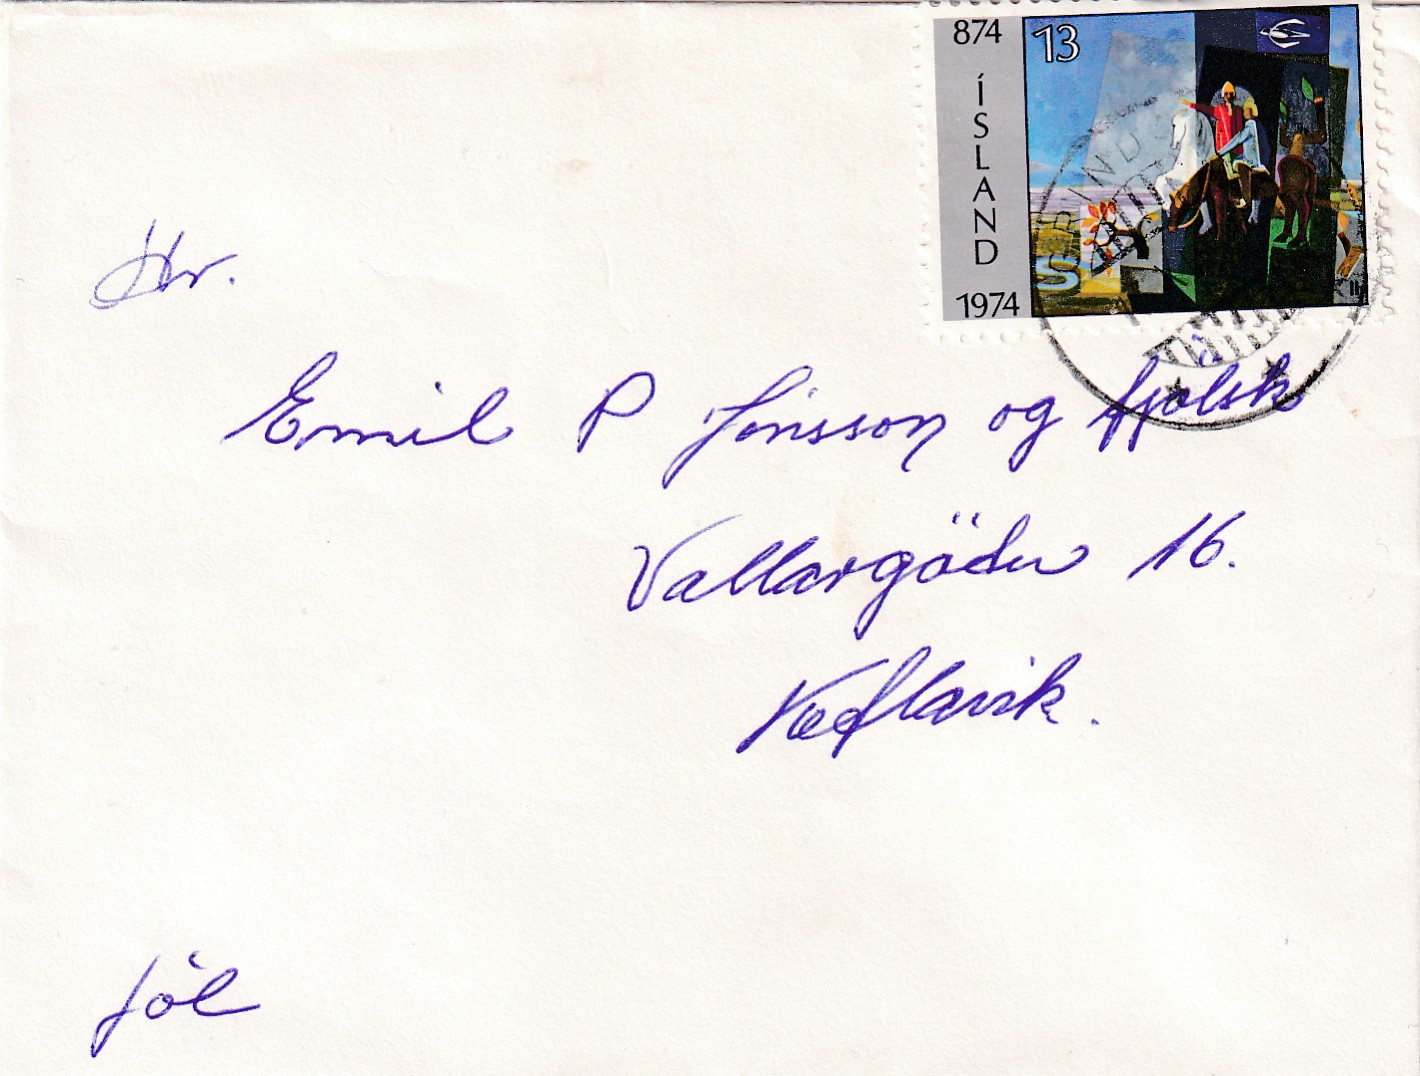 874
ÍSLAND
1974
13
Hr.
Emil P Jónsson og fjölsk
Vallargötu 16.
Keflavík.
Jól